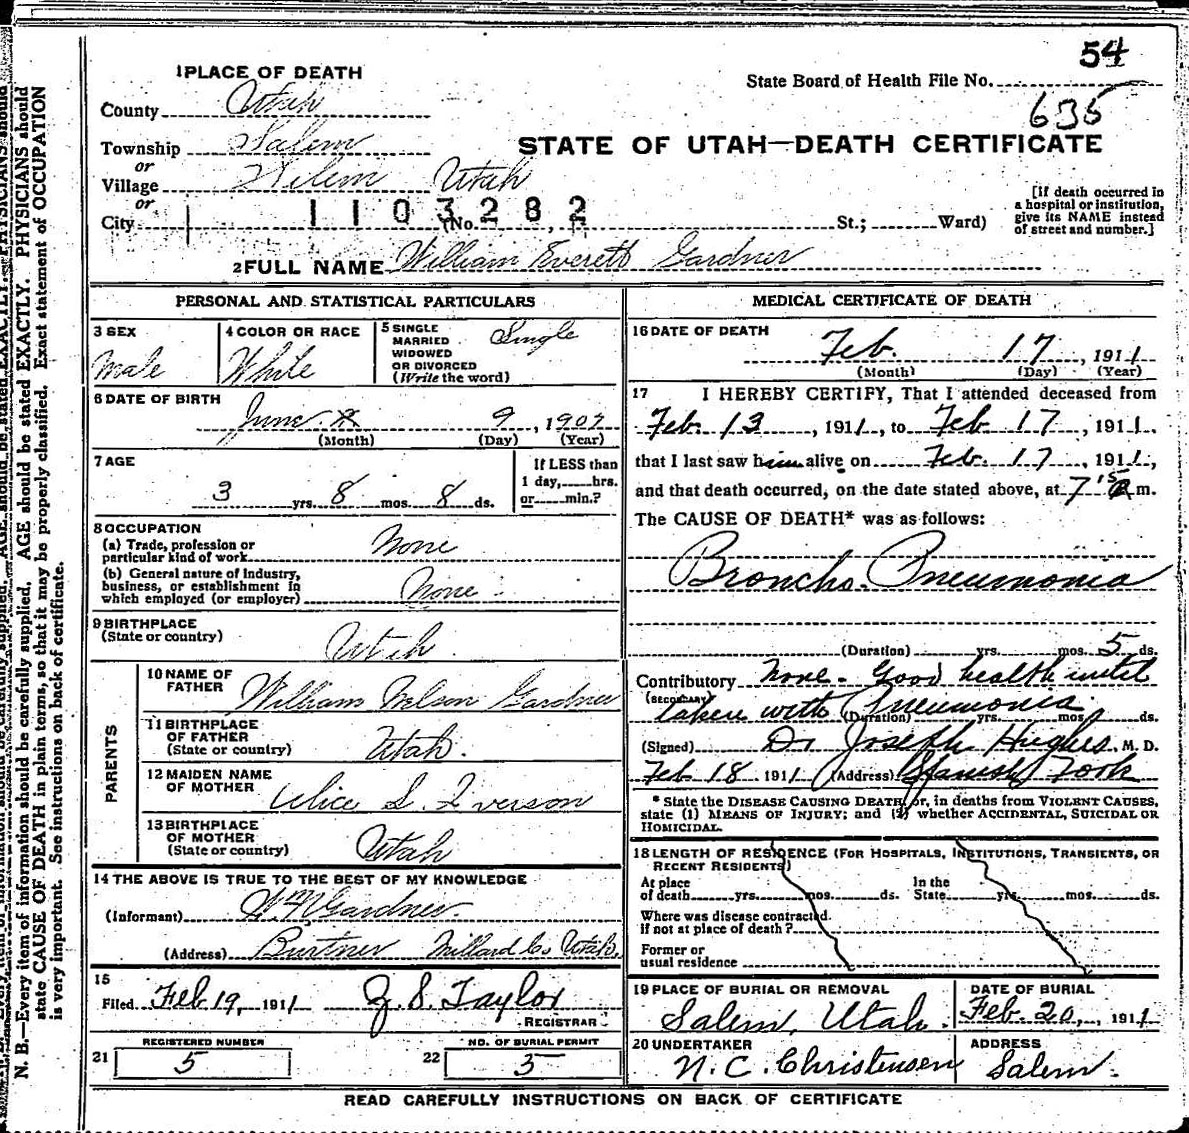 54
State Board of Health File No.
635
1 PLACE OF DEATH
County Utah
STATE OF UTAH—DEATH CERTIFICATE
Township Salem
or
Village Salem Utah
or
City 1103282 (No. St.; Ward)
[If death occurred in a hospital or institution, give its NAME instead of street and number.]
2 FULL NAME William Everett Gardner
PERSONAL AND STATISTICAL PARTICULARS
3 SEX
Male
4 COLOR OR RACE
White
5 SINGLE
MARRIED
WIDOWED
OR DIVORCED
(Write the word)
Single
6 DATE OF BIRTH
June 9, 1907
(Month) (Day) (Year)
7 AGE
3 yrs. 8 mos. 8 ds.
If LESS than
1 day, hrs.
or min.?
8 OCCUPATION
(a) Trade, profession or
particular kind of work None
(b) General nature of Industry,
business, or establishment in
which employed (or employer) None
9 BIRTHPLACE
(State or country) Utah
PARENTS
10 NAME OF
FATHER William Nelson Gardner
11 BIRTHPLACE
OF FATHER
(State or country) Utah.
12 MAIDEN NAME
OF MOTHER Alice S. Iverson
13 BIRTHPLACE
OF MOTHER
(State or country) Utah
14 THE ABOVE IS TRUE TO THE BEST OF MY KNOWLEDGE
(Informant) W N Gardner.
(Address) Burtner Millard Co Utah.
15
Filed Feb 19, 1911 J. S. Taylor
REGISTRAR
21 REGISTERED NUMBER
5
22 NO. OF BURIAL PERMIT
5
MEDICAL CERTIFICATE OF DEATH
16 DATE OF DEATH
Feb. 17, 1911
(Month) (Day) (Year)
17 I HEREBY CERTIFY, That I attended deceased from
Feb. 13, 1911, to Feb 17, 1911.
that I last saw him alive on Feb. 17, 1911,
and that death occurred, on the date stated above, at 7 15 a m.
The CAUSE OF DEATH* was as follows:
Broncho. Pneumonia
(Duration) yrs. mos. 5 ds.
Contributory None. Good health until
(SECONDARY)
taken with Pneumonia
(Duration) yrs. mos. ds.
(Signed) Dr Joseph Hughes, M. D.
Feb 18 1911 (Address) Spanish Fork
* State the DISEASE CAUSING DEATH, or, in deaths from VIOLENT CAUSES,
state (1) MEANS OF INJURY; and (2) whether ACCIDENTAL, SUICIDAL OR
HOMICIDAL.
18 LENGTH OF RESIDENCE (FOR HOSPITALS, INSTITUTIONS, TRANSIENTS, OR
RECENT RESIDENTS)
At place
of death yrs. mos. ds. In the
State yrs. mos. ds.
Where was disease contracted.
if not at place of death?
Former or
usual residence
19 PLACE OF BURIAL OR REMOVAL
Salem, Utah.
DATE OF BURIAL
Feb. 20, 1911
20 UNDERTAKER
N. C. Christensen
ADDRESS
Salem.
READ CAREFULLY INSTRUCTIONS ON BACK OF CERTIFICATE
N. B.—Every item of information should be carefully supplied. AGE should be stated EXACTLY. PHYSICIANS should
state CAUSE OF DEATH in plain terms, so that it may be properly classified. Exact statement of OCCUPATION
is very important. See instructions on back of certificate.